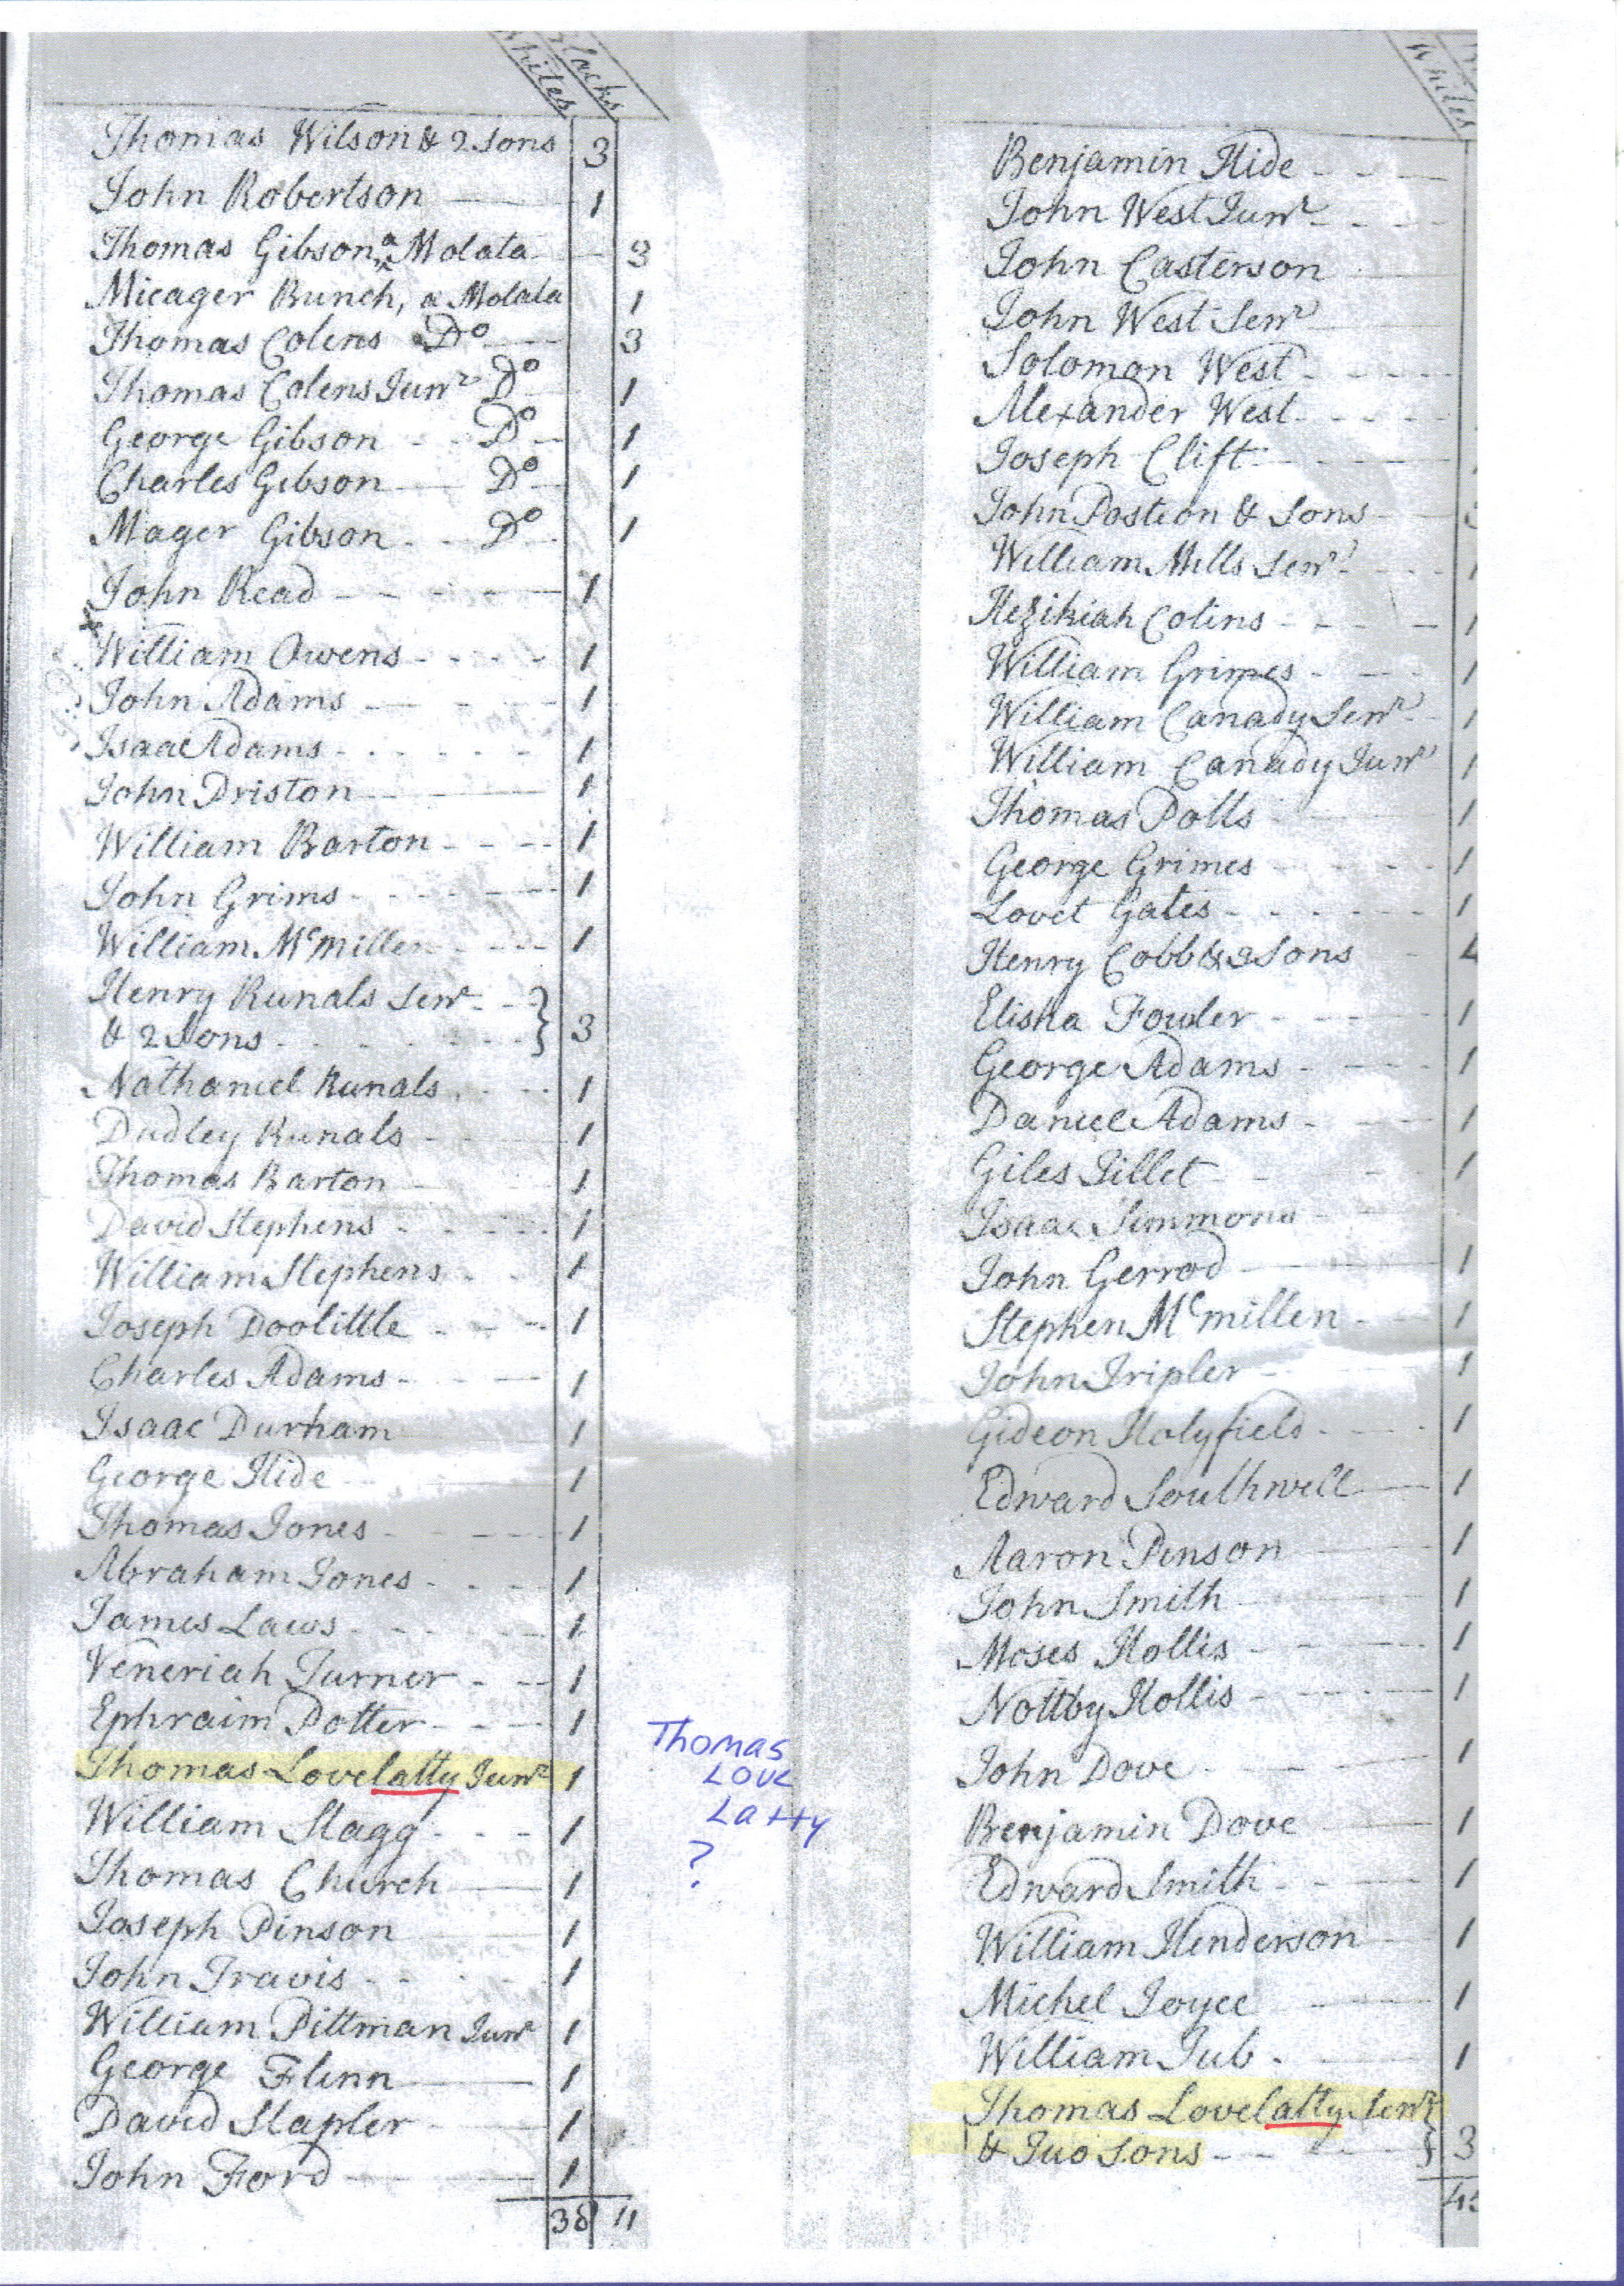 Whites
Blacks
Thomas Wilson & 2 Sons 3
John Robertson 1
Thomas Gibson, a Molata 3
Micager Bunch, a Molata 1
Thomas Colens Do 3
Thomas Colens Junr Do 1
George Gibson Do 1
Charles Gibson Do 1
Mager Gibson Do 1
John Read 1
William Owens 1
John Adams 1
Isaac Adams 1
John Driston 1
William Barton 1
John Grims 1
William Mcmillen 1
Henry Runals Senr
& 2 Sons 3
Nathaniel Runals 1
Dudley Runals 1
Thomas Barton 1
David Stephens 1
William Stephens 1
Joseph Doolittle 1
Charles Adams 1
Isaac Durham 1
George Hide 1
Thomas Jones 1
Abraham Jones 1
James Laws 1
Veneriah Turner 1
Ephraim Potter 1
Thomas Lovelatty Junr 1
William Stagg 1
Thomas Church 1
Joseph Pinson 1
John Travis 1
William Pittman Junr 1
George Flinn 1
David Stapler 1
John Ford 1
38 11
Thomas
Love
Latty
?
Whites
Benjamin Hide
John West Junr
John Casterson
John West Senr
Solomon West
Alexander West
Joseph Clift
John Posteon & Sons
William Mills Senr 1
Hezikiah Colins 1
William Grimes 1
William Canady Senr 1
William Canady Junr 1
Thomas Potts 1
George Grimes 1
Lovet Gates 1
Henry Cobb & 3 Sons 4
Elisha Fowler 1
George Adams 1
Daniel Adams 1
Giles Tillet 1
Isaac Simmons
John Gerrod 1
Stephen Mcmillen 1
John Tripler 1
Gideon Holyfield 1
Edward Southwell 1
Aaron Pinson 1
John Smith 1
Moses Hollis 1
Nottby Hollis 1
John Dove 1
Benjamin Dove 1
Edward Smith 1
William Henderson 1
Michel Joyce 1
William Tub 1
Thomas Lovelatty Senr
& Two Sons 3